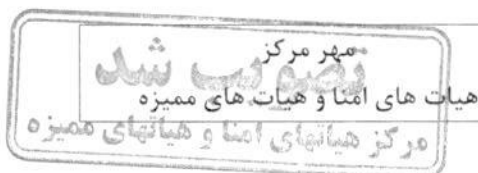 مهر مرکز
هیات های امنا و هیات های ممیزه
تصویب شد
مرکز هیاتهای امنا و هیاتهای ممیزه